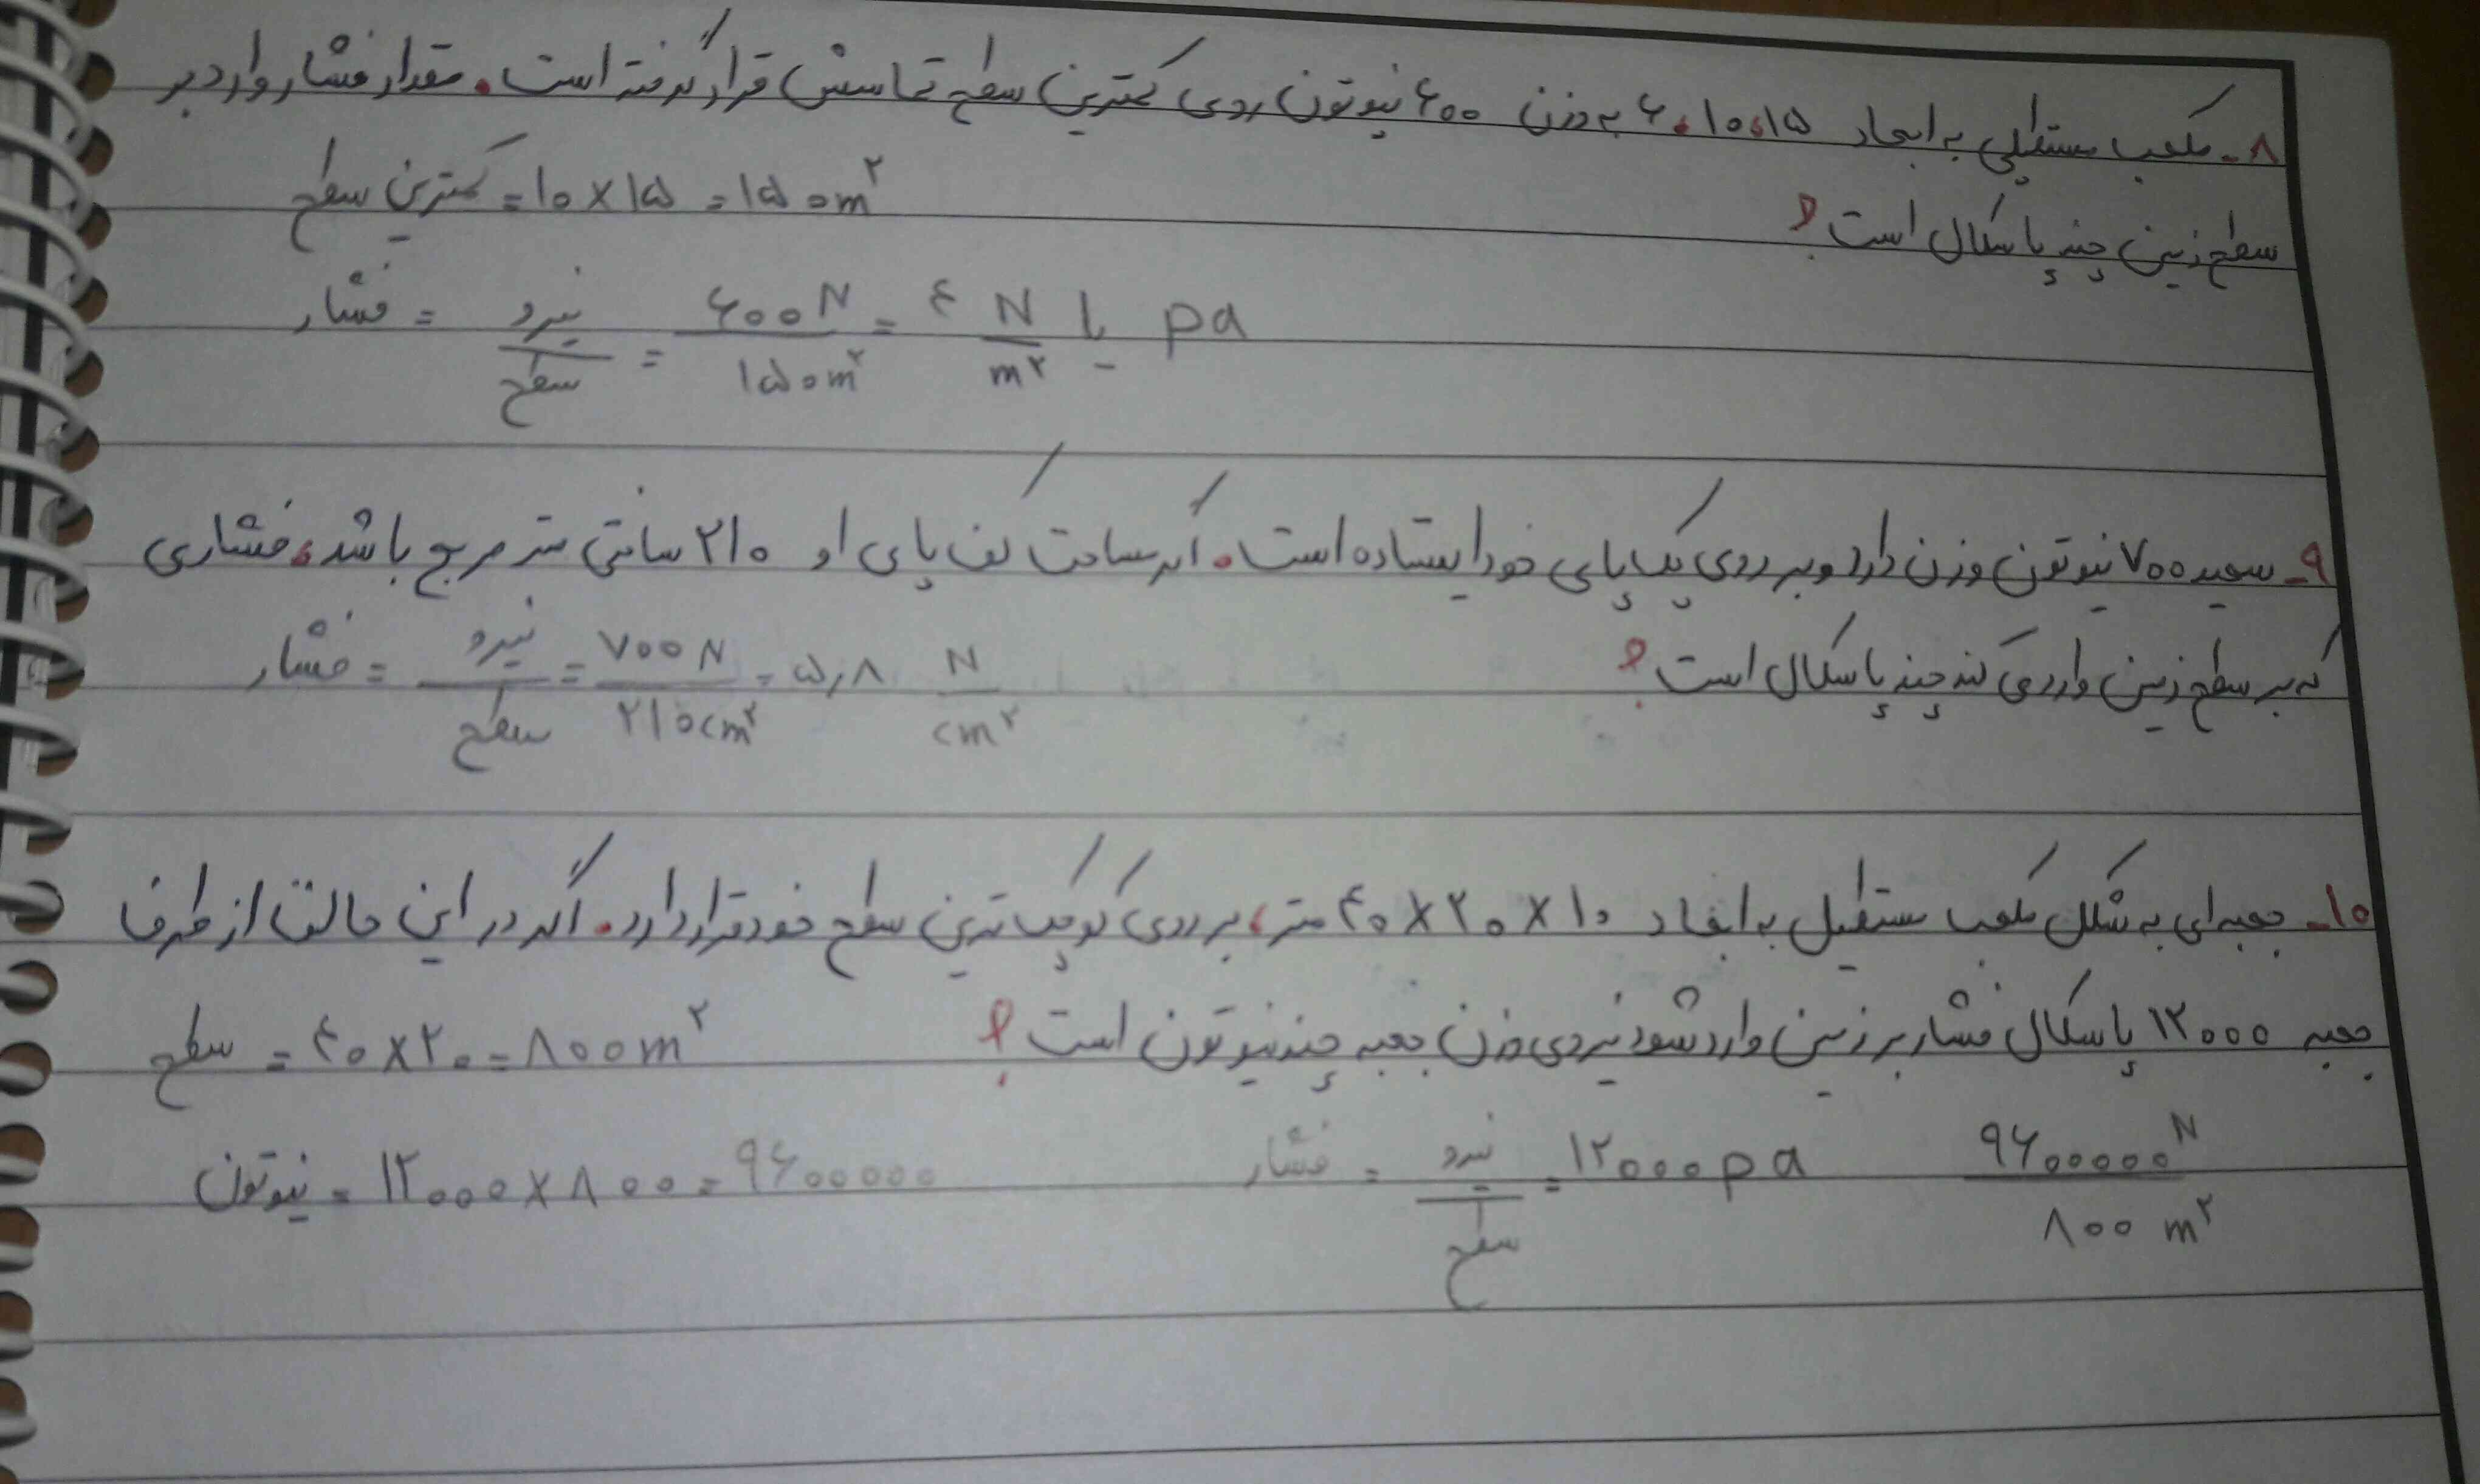 ۸- مکعب مستطیلی به ابعاد ۱۵، ۱۰، ۶ به وزن ۶۰۰ نیوتون روی کمترین سطح تماسش قرار گرفته است. مقدار فشار وارد بر
سطح زمین چند پاسکال است؟
کمترین سطح = ۱۰ × ۱۵ = ۱۵۰ m²
فشار = نیرو / سطح = ۶۰۰ N / ۱۵۰ m² = ۴ N / m² یا pa
۹- سعید ۷۰۰ نیوتون وزن دارد و بر روی یک پای خود ایستاده است. اگر مساحت کف پای او ۲۱۰ سانتی متر مربع باشد، فشاری
که بر سطح زمین وارد می کند چند پاسکال است؟
فشار = نیرو / سطح = ۷۰۰ N / ۲۱۰ cm² = ۵٫۸ N / cm²
۱۰- جعبه ای به شکل مکعب مستطیل به ابعاد ۱۰ × ۲۰ × ۴۰ متر، بر روی کوچک ترین سطح خود قرار دارد. اگر در این حالت از طرف
جعبه ۱۲۰۰۰ پاسکال فشار بر زمین وارد شود نیروی وزن جعبه چند نیوتون است؟
سطح = ۴۰ × ۲۰ = ۸۰۰ m²
فشار = نیرو / سطح = ۱۲۰۰۰ pa ۹۶۰۰۰۰۰ N / ۸۰۰ m²
نیوتون = ۱۲۰۰۰ × ۸۰۰ = ۹۶۰۰۰۰۰